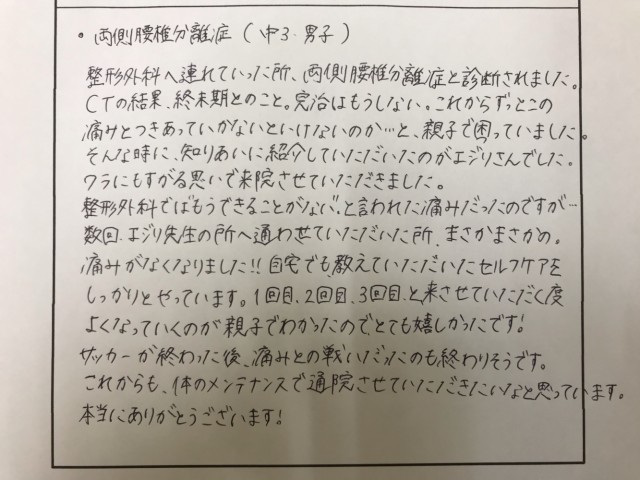 ・両側腰椎分離症（中3・男子）
整形外科へ連れていった所、両側腰椎分離症と診断されました。
CTの結果、終末期とのこと。完治はもうしない。これからずっとこの
痛みとつきあっていかないといけないのか…と、親子で困っていました。
そんな時に、知りあいに紹介していただいたのがエジリさんでした。
ワラにもすがる思いで来院させていただきました。
整形外科で"もうできることがない"と言われた痛みだったのですが…
数回、エジリ先生の所へ通わせていただいた所、まさかまさかの。
痛みがなくなりました!!自宅でも、教えていただいたセルフケアを
しっかりとやっています。1回目、2回目、3回目、と来させていただく度
よくなっていくのが親子でわかったのでとても嬉しかったです!
サッカーが終わった後、痛みとの戦いだったのも終わりそうです。
これからも、体のメンテナンスで通院させていただきたいなと思っています。
本当にありがとうございます!